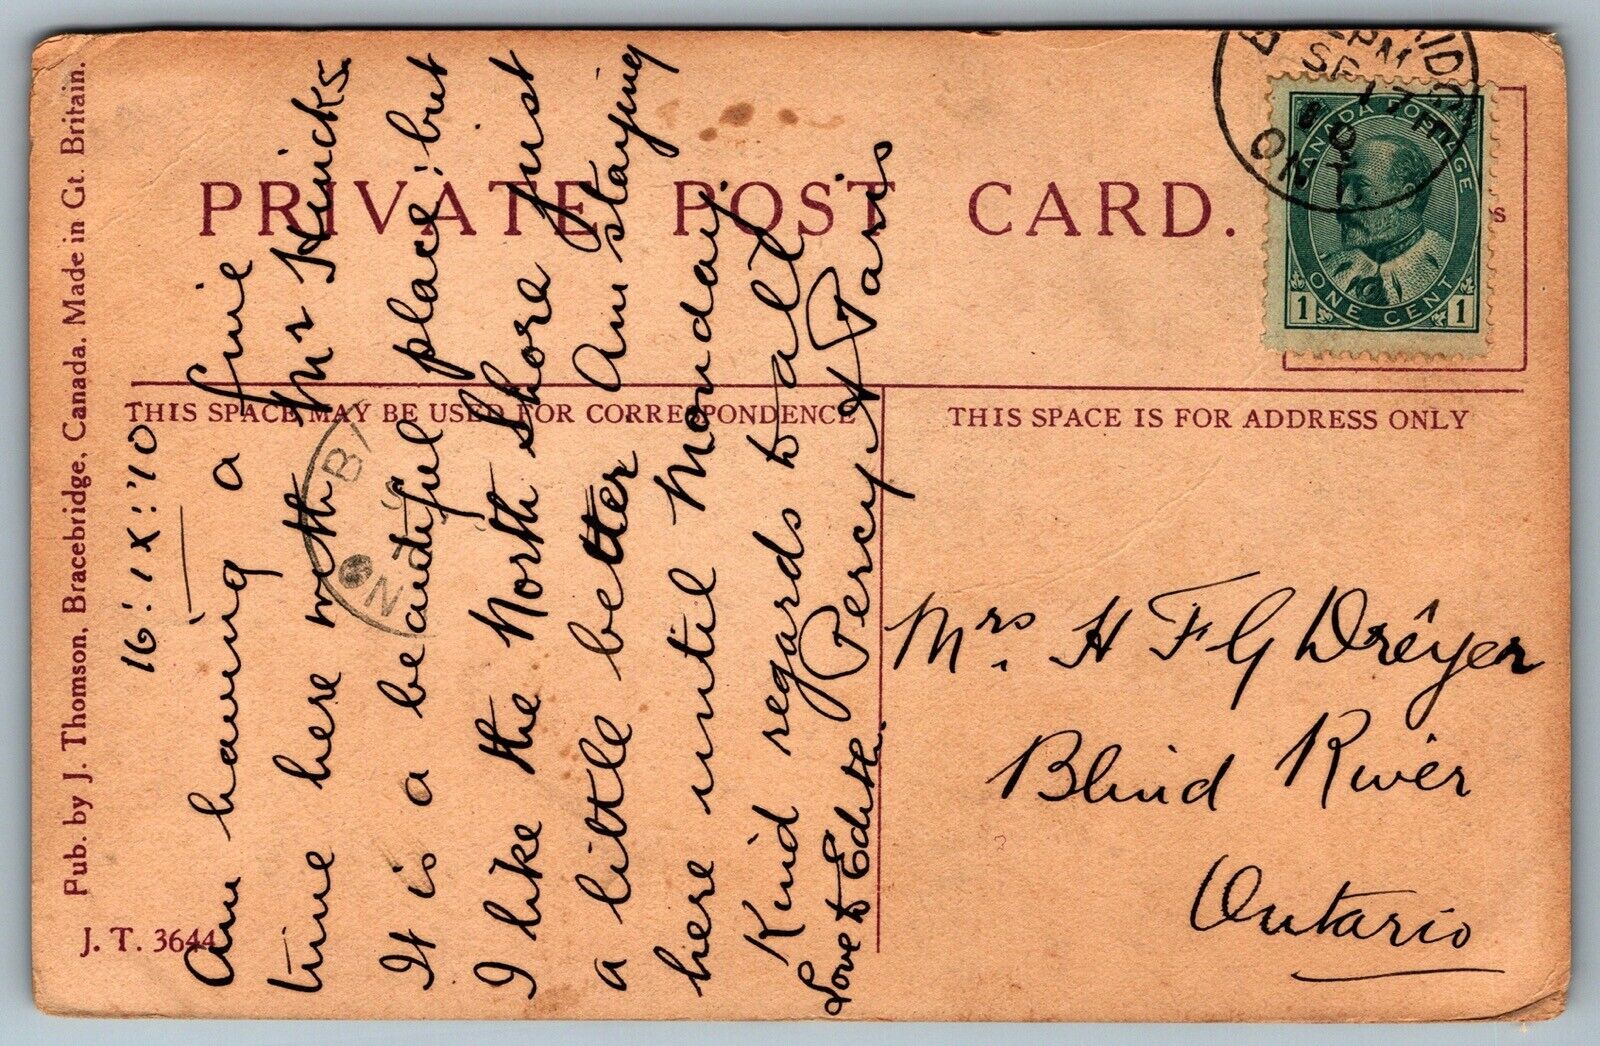 Pub. by J. Thomson, Bracebridge, Canada. Made in Gt. Britain.
J. T. 3644
PRIVATE POST CARD.
THIS SPACE MAY BE USED FOR CORRESPONDENCE
THIS SPACE IS FOR ADDRESS ONLY
16:IX:'10
Am having a fine
time here with Mr Hincks.
It is a beautiful place; but
I like the North Shore just
a little better Am staying
here until Monday
Kind regards to all
Love to Edith. Percy H Paris
Mrs. H F G Dreyer
Blind River
Ontario
PM
SP 17
10
ONT.
CANADA POSTAGE
1 ONE CENT 1
BA
ON
S